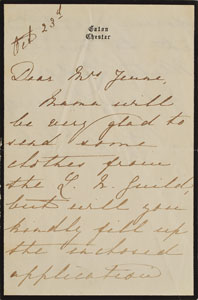 Eaton
Chester
Oct 23rd
Dear Mrs Jeune,
Mama will
be very glad to
send some
clothes from
the L. N. Guild,
but will you
kindly fill up
the enclosed
application